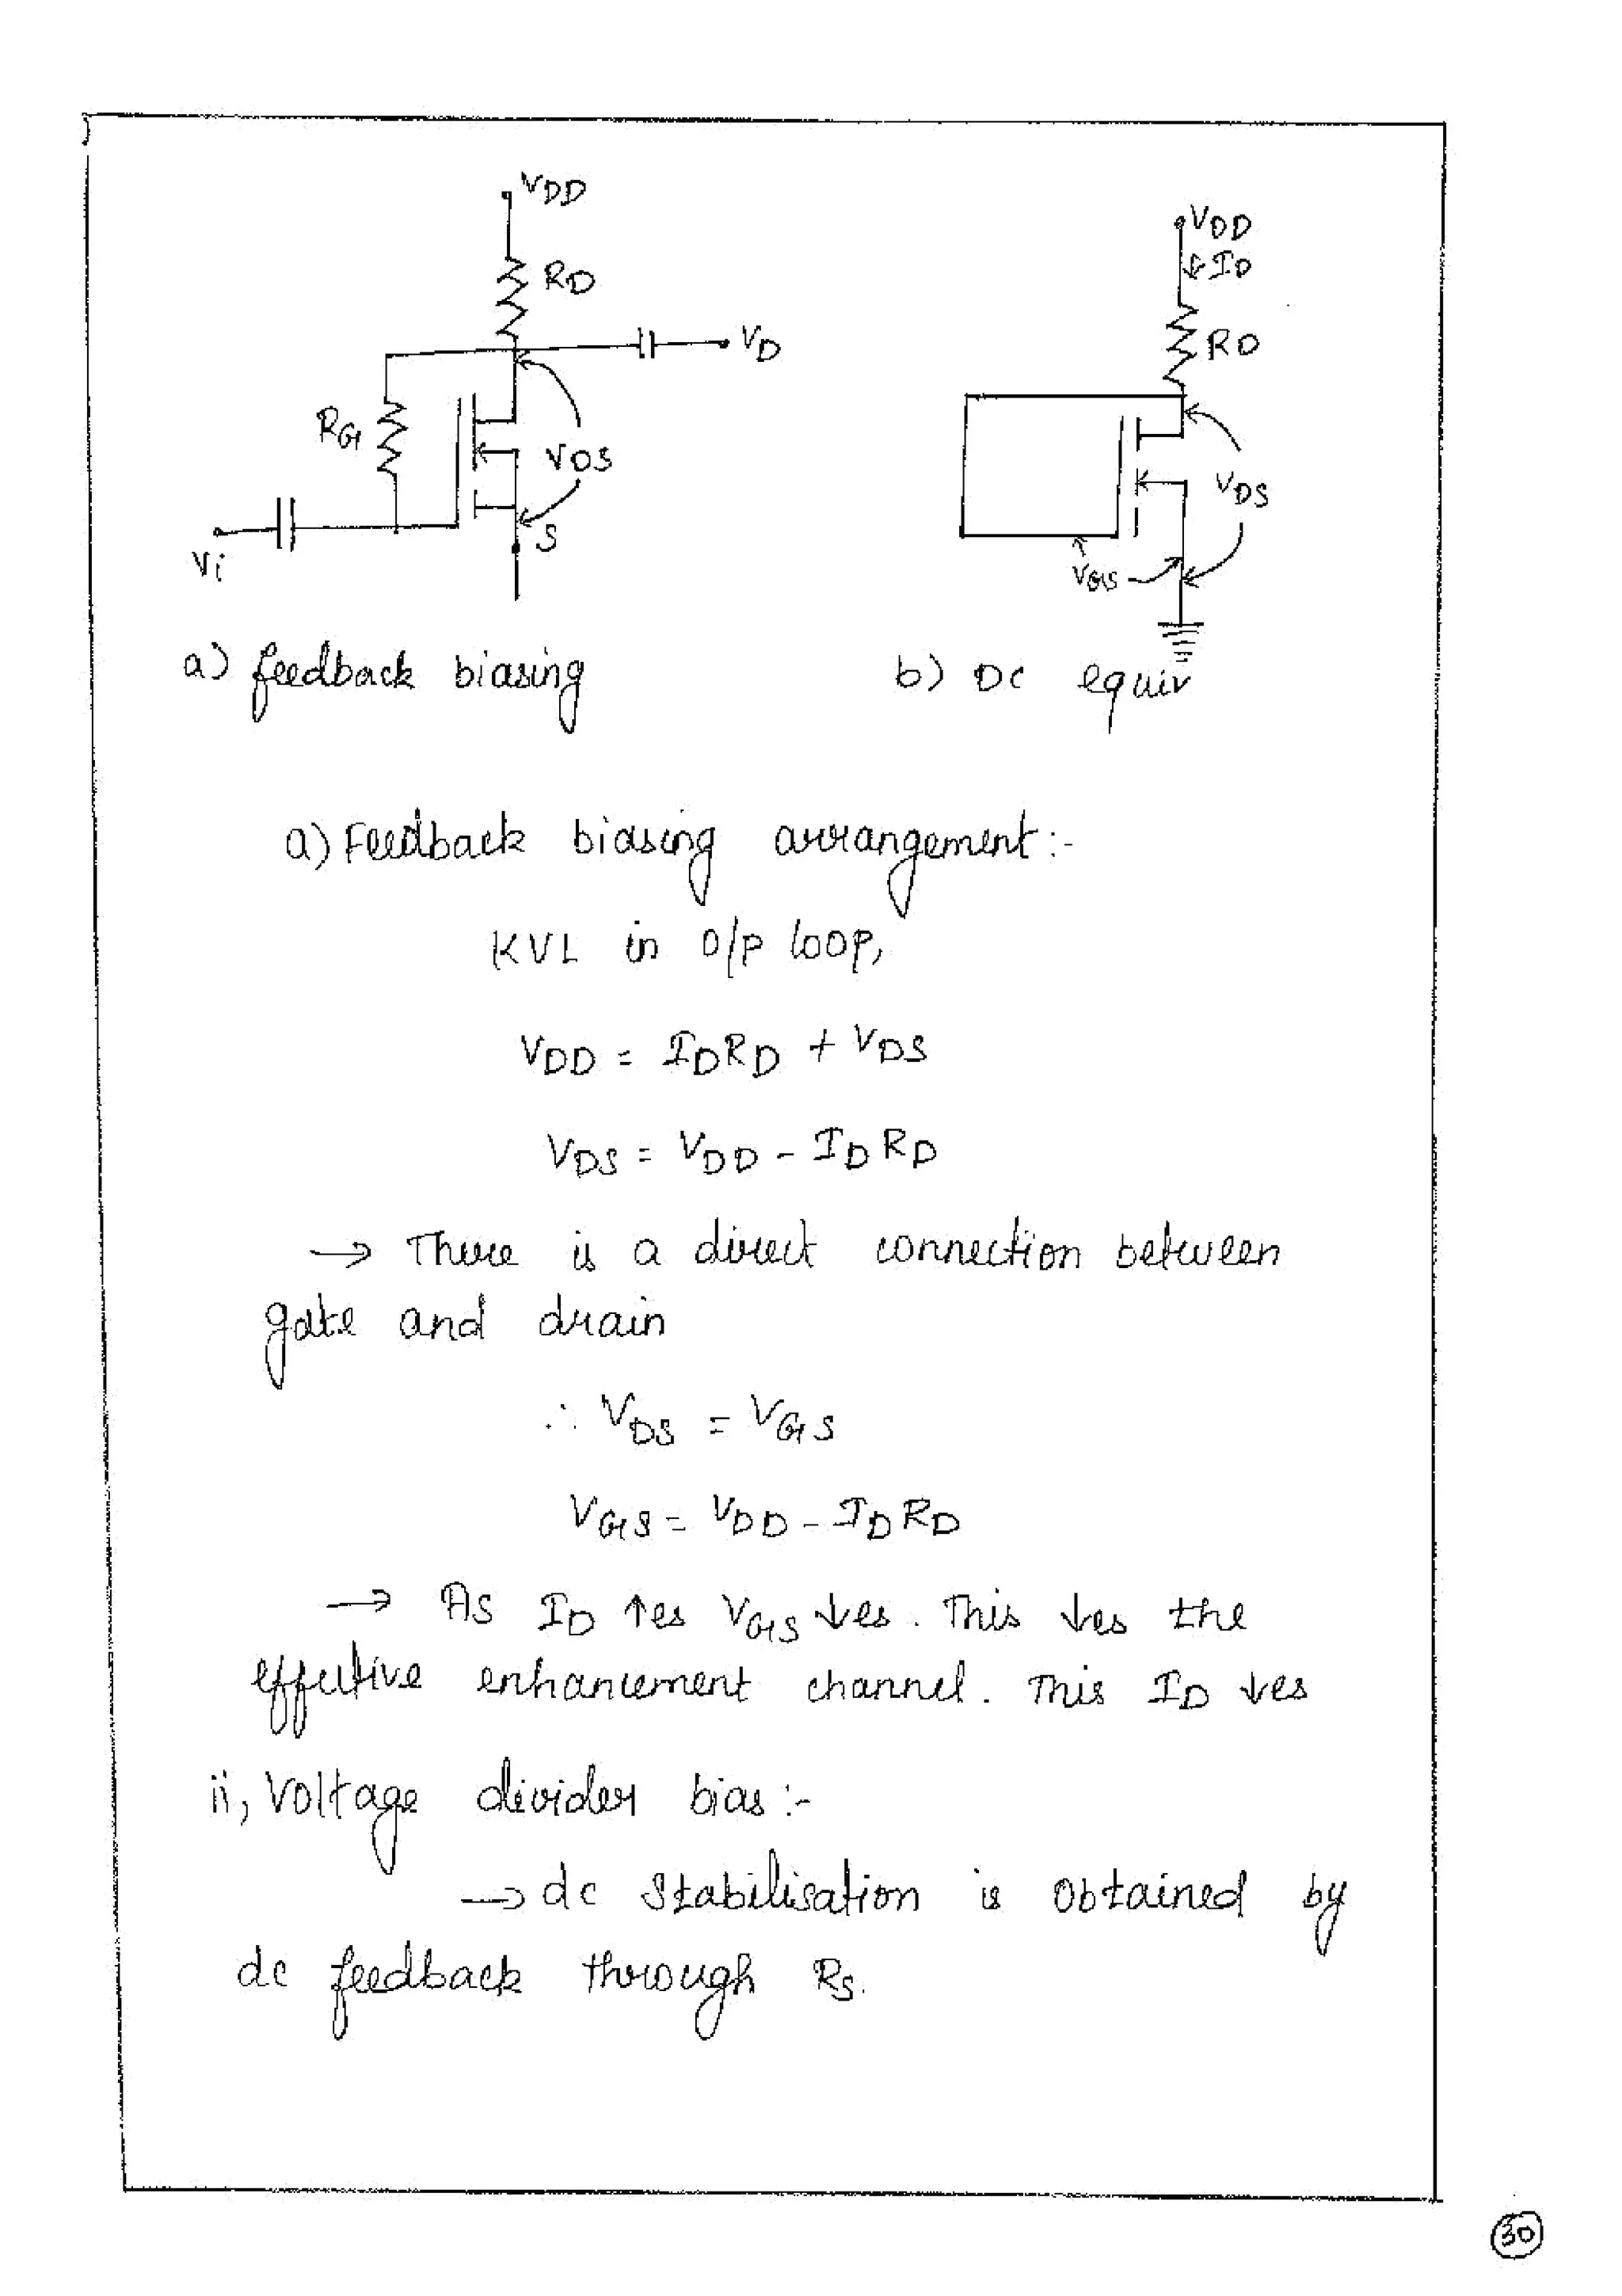 VDD
RD
VD
RG
VDS
S
Vi
a) feedback biasing
VDD
ID
RD
VDS
VGS
b) DC equiv
a) Feedback biasing arrangement :-
KVL in o/p loop,
VDD = IDRD + VDS
VDS = VDD - IDRD
→ There is a direct connection between
gate and drain
∴ VDS = VGS
VGS = VDD - IDRD
→ As ID ↑es VGS ↓es. This ↓es the
effective enhancement channel. This ID ↓es
ii, Voltage divider bias :-
→ dc stabilisation is obtained by
dc feedback through RS.
30